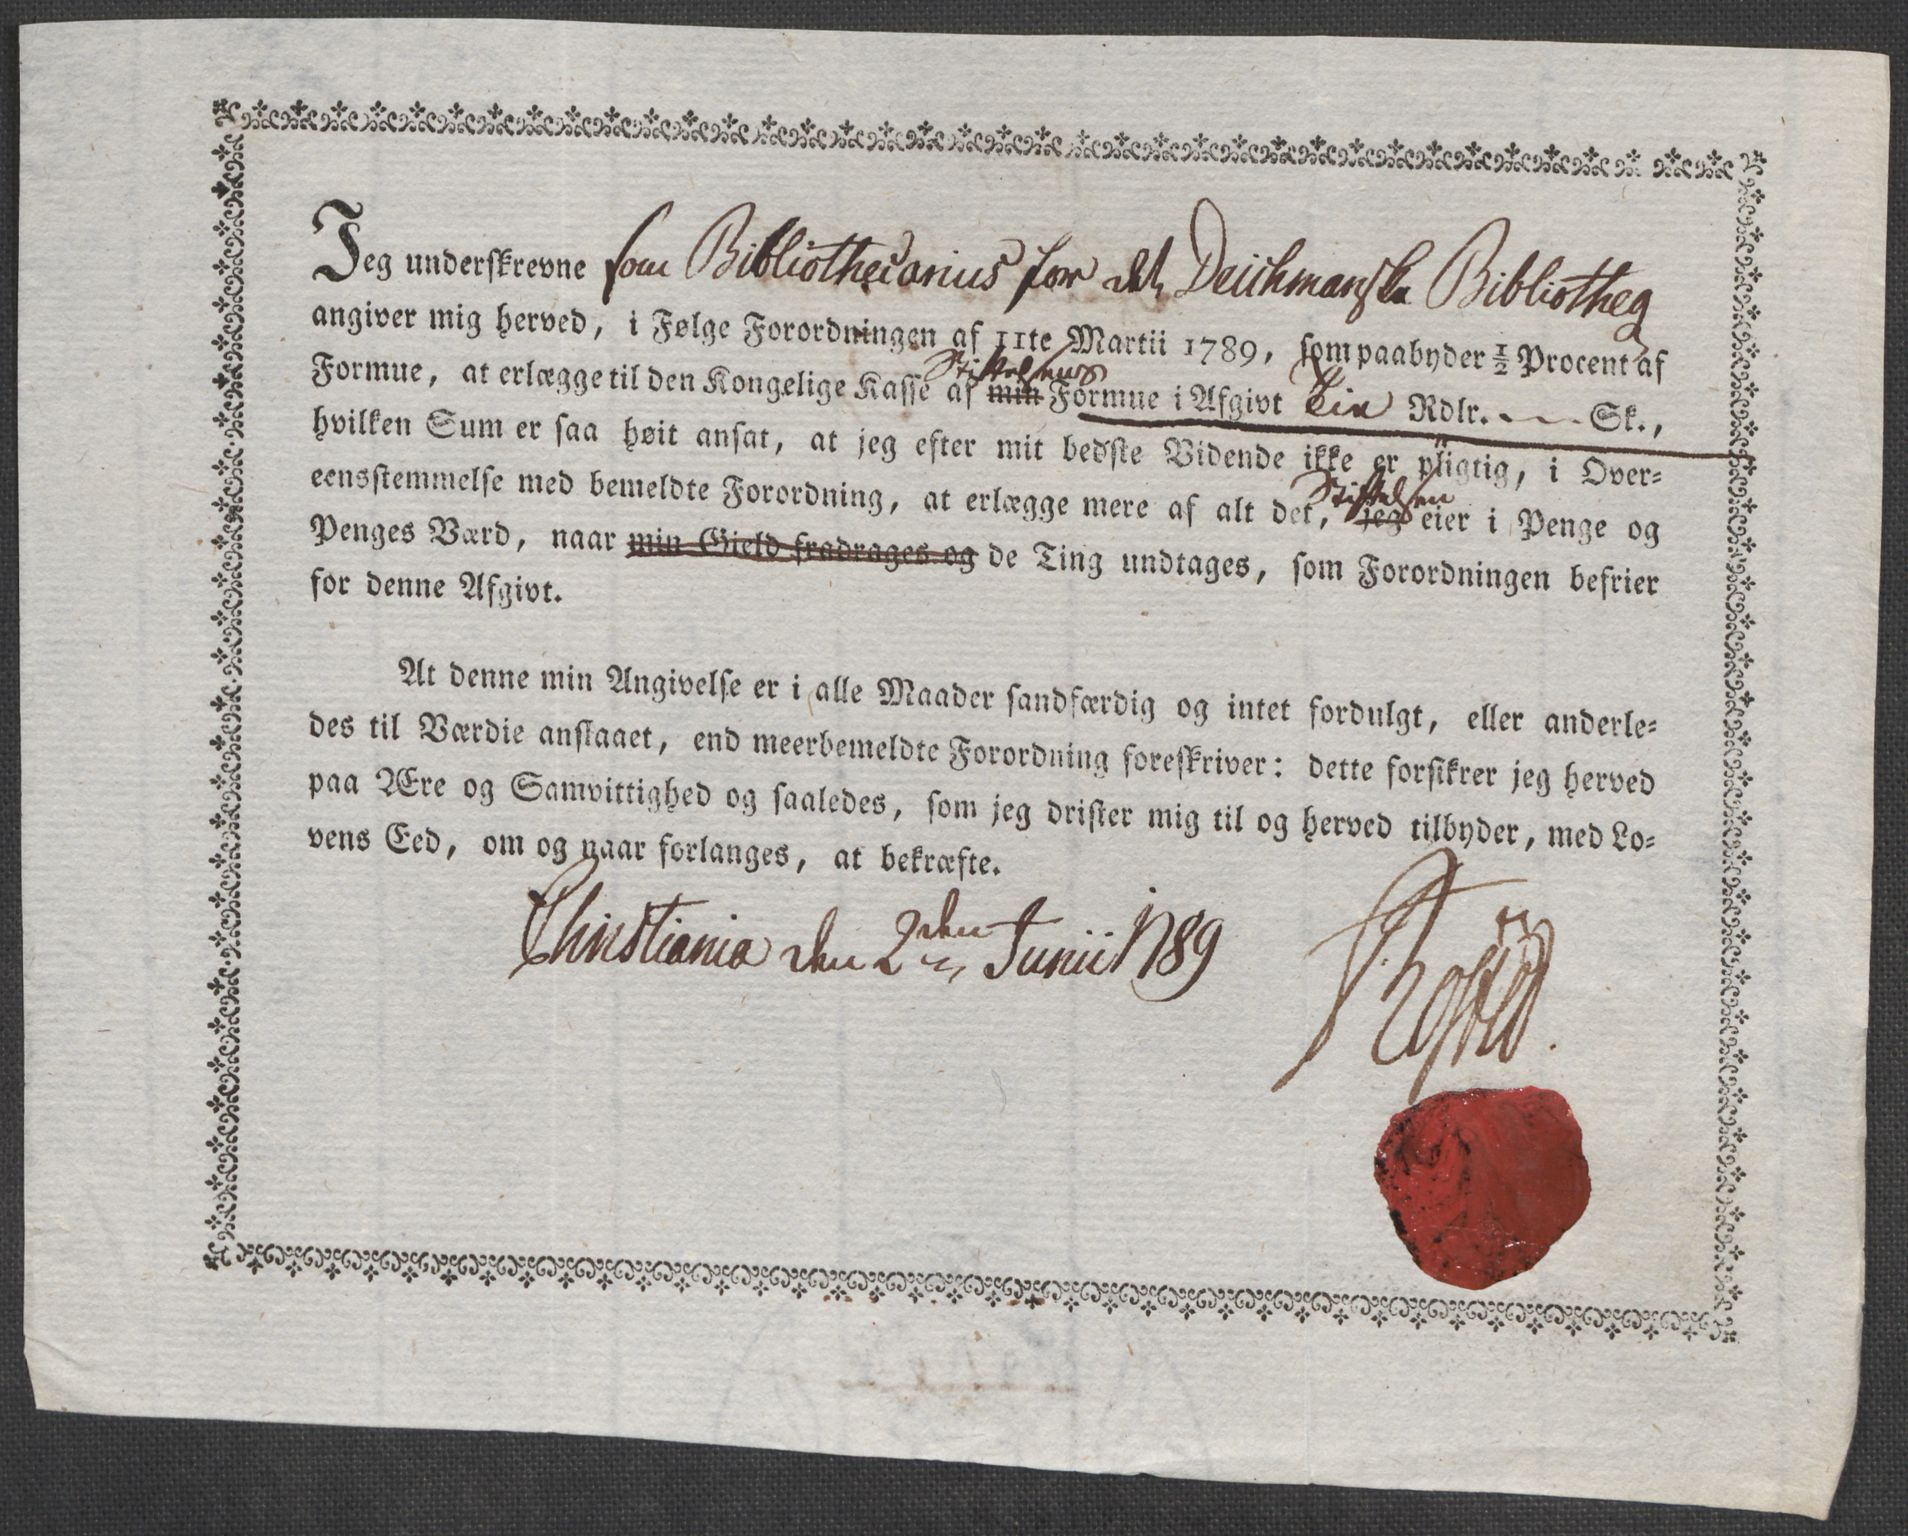 Jeg underskrevne som Bibliothecarius for det Deichmanske Bibliotheg
angiver mig herved, i Følge Forordningen af 11te Martii 1789, som paabyder ½ Procent af
Stiftelsens
Formue, at erlægge til den Kongelige Kasse af min Formue i Afgivt Rdlr. Sk.,
hvilken Sum er saa høit ansat, at jeg efter mit bedste Vidende ikke er pligtig, i Over-
Stiftelsen
eensstemmelse med bemeldte Forordning, at erlægge mere af alt det, jeg eier i Penge og
Penges Værd, naar min Gield fradrages og de Ting undtages, som Forordningen befrier
for denne Afgivt.
At denne min Angivelse er i alle Maader sandfærdig og intet fordulgt, eller anderle-
des til Værdie anslaaet, end meerbemeldte Forordning foreskriver: dette forsikrer jeg herved
paa Ære og Samvittighed og saaledes, som jeg drister mig til og herved tilbyder, med Lo-
vens Eed, om og naar forlanges, at bekræfte.
Christiania den 2den Junii 1789